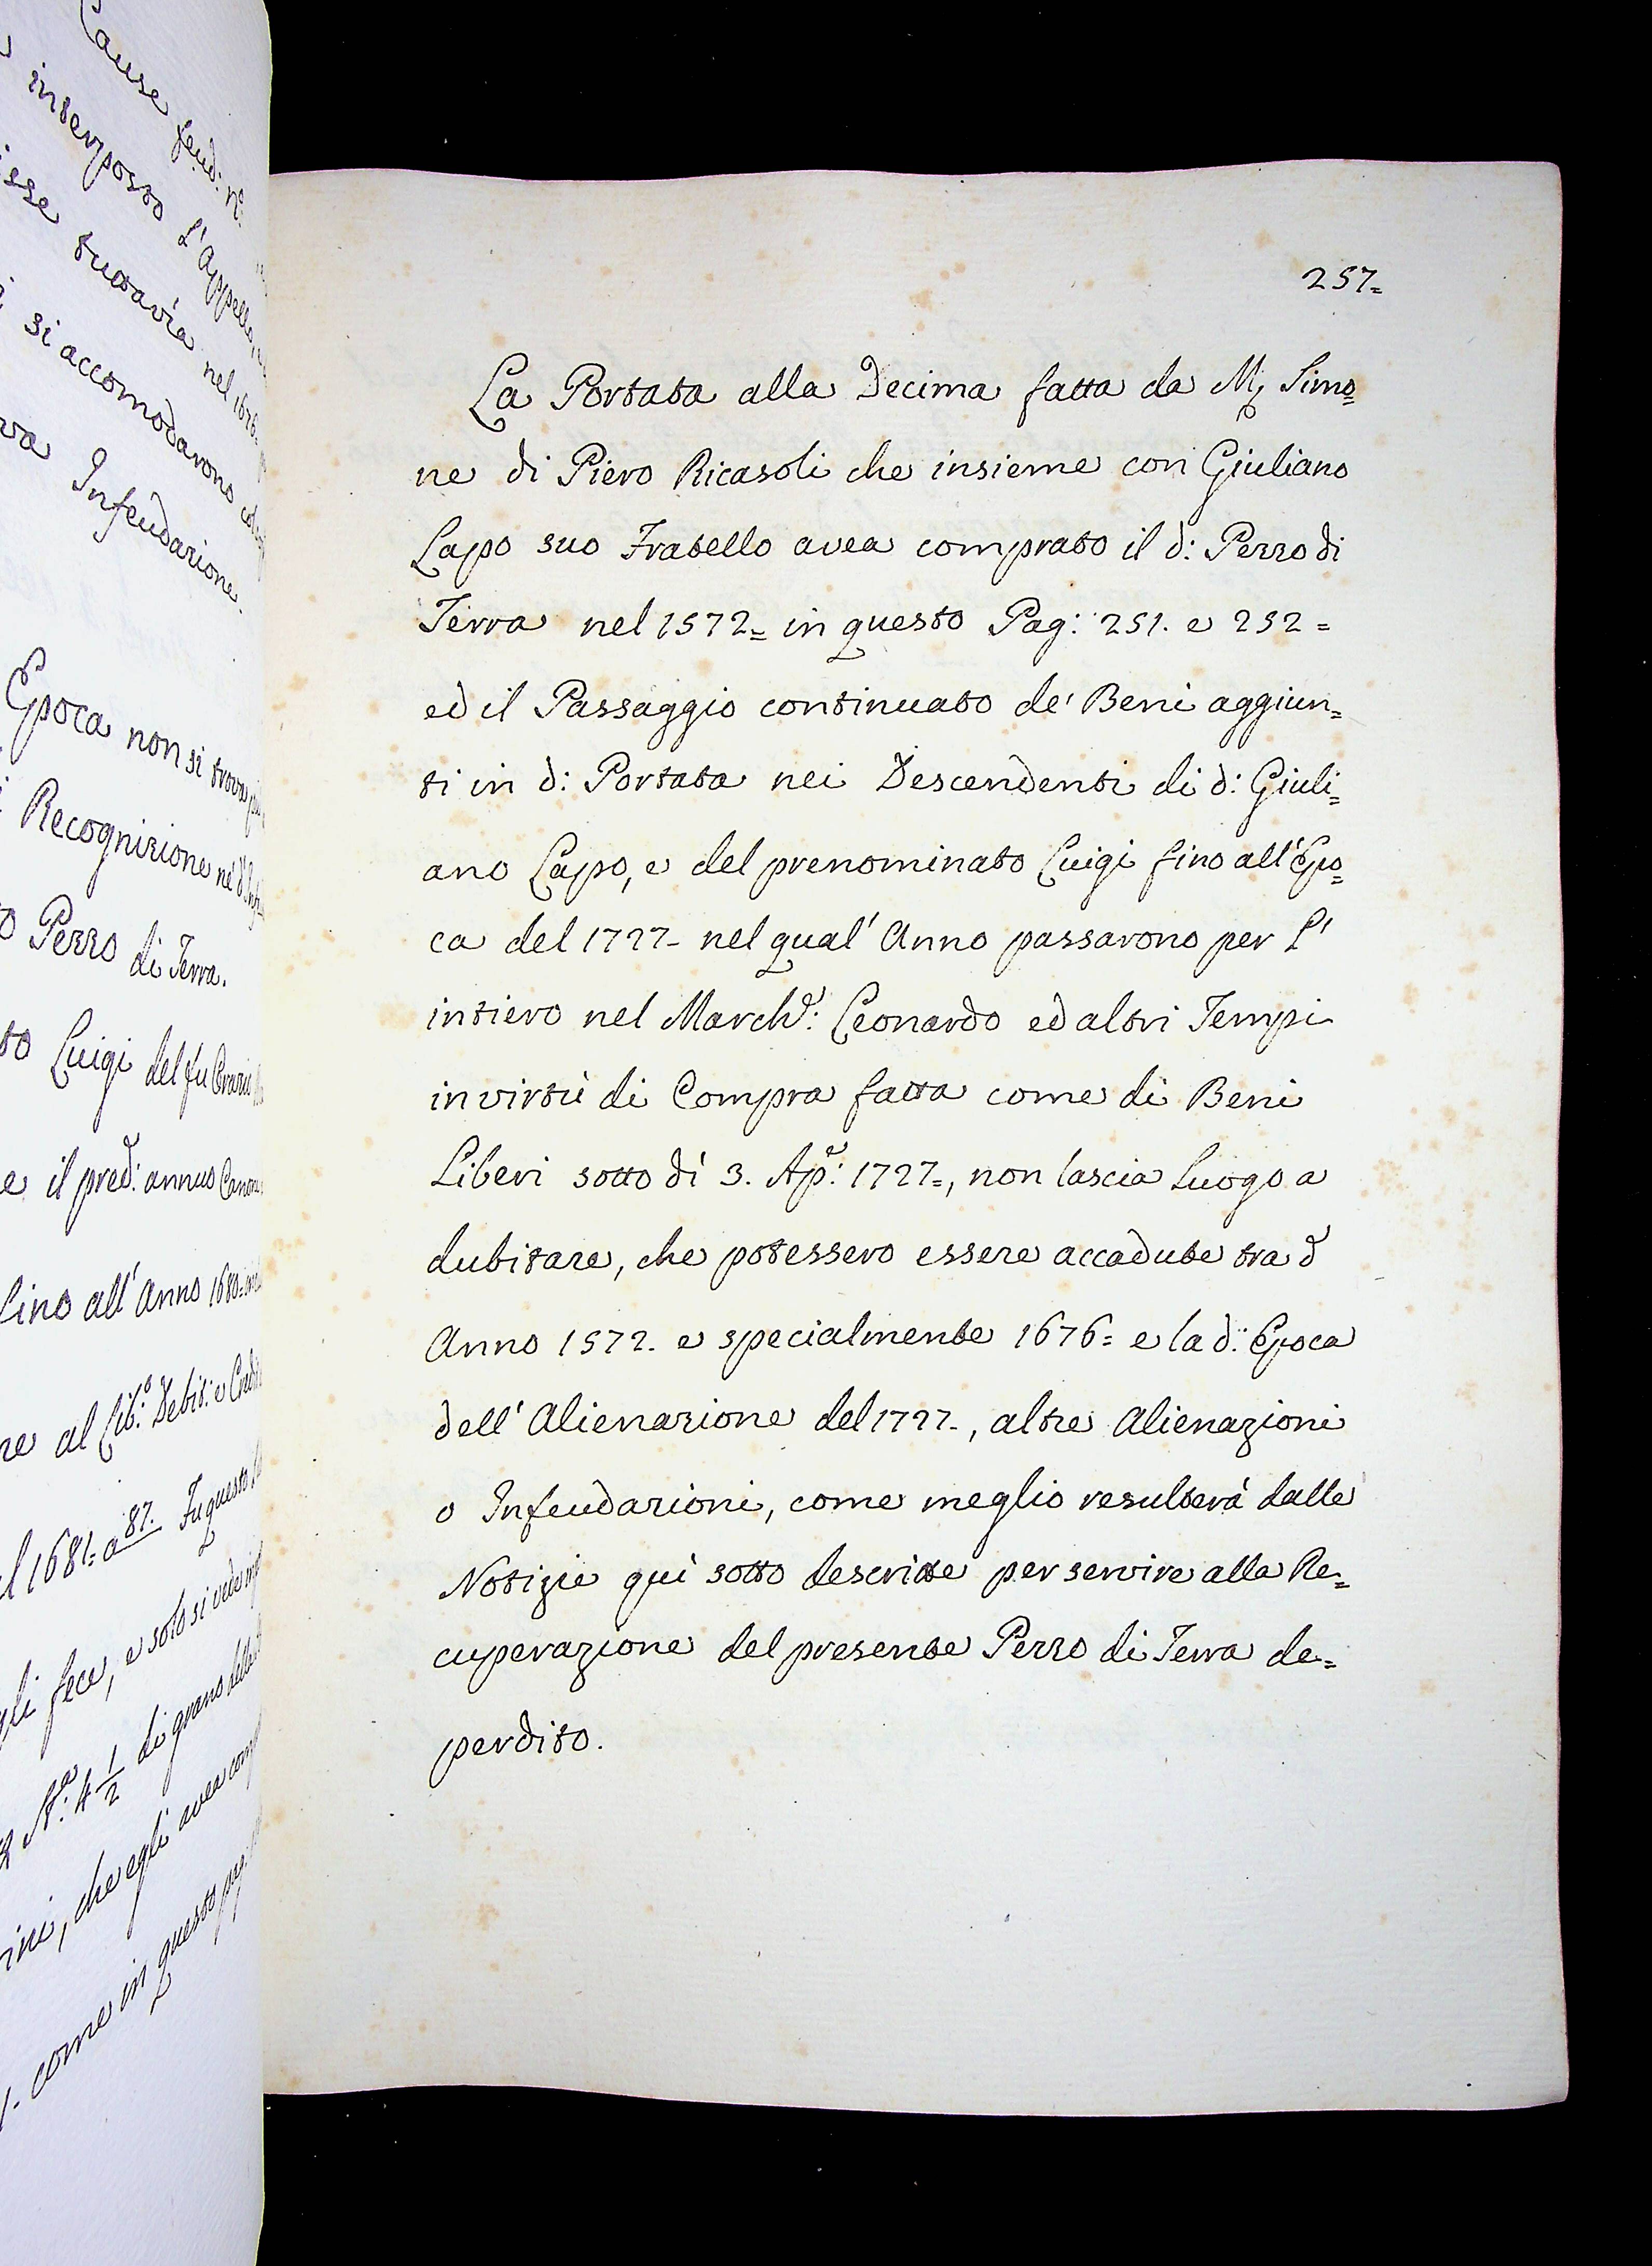 Cause feud: N.
interposto l'Appello
isse tuttavia nel 1676
si accomodarono
va Infeudazione.
Epoca non si trova
Recognizione
Pezzo di Terra.
to Luigi del fu
e il pred: annuo Canone
fino all' Anno 1680
re al Lib.o Debit: e
1681= a 87. In questo
gli fece, e solo si vede
4 1/2 di grano
ini, che egli avea
come in questo pag:
257=
La Portata alla Decima fatta da M. Simo=
ne di Piero Ricasoli che insieme con Giuliano
Lapo suo Fratello avea comprato il d: Pezzo di
Terra nel 1572= in questo Pag: 251. e 252=
ed il Passaggio continuato de' Beni aggiun=
ti in d: Portata nei Descendenti di d: Giuli=
ano Lapo, e del prenominato Luigi fino all' Epo=
ca del 1727- nel qual' Anno passarono per l'
intiero nel March.e: Leonardo ed altri Tempi
in virtù di Compra fatta come di Beni
Liberi sotto dì 3. Ap.e: 1727=, non lascia luogo a
dubitare, che potessero essere accadute tra d
Anno 1572. e specialmente 1676= e la d: Epoca
dell' Alienazione del 1727-, altre Alienazioni
o Infeudazioni, come meglio resulterà dalle
Notizie quì sotto descritte per servire alla Re=
cuperazione del presente Pezzo di Terra de=
perdito.